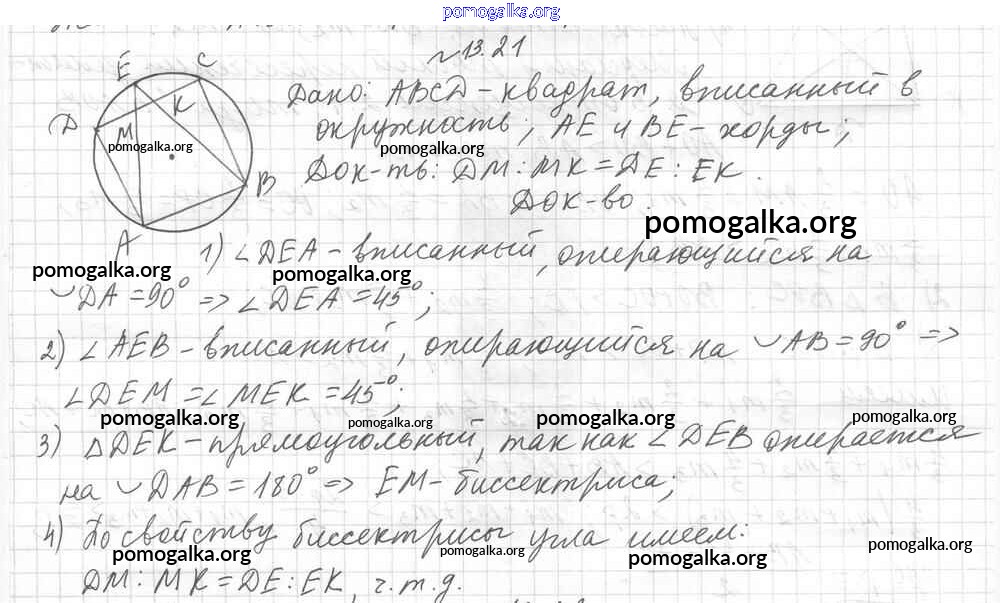 pomogalka.org
№13.21
E C
D K
M
pomogalka.org
B
A
Дано: ABCD - квадрат, вписанный в
окружность; AE и BE - хорды;
pomogalka.org
Док-ть: DM : MK = DE : EK.
Док-во.
pomogalka.org
1) ∠DEA - вписанный, опирающийся на
pomogalka.org pomogalka.org
◡DA = 90° => ∠DEA = 45°;
2) ∠AEB - вписанный, опирающийся на ◡AB = 90° =>
∠DEM = ∠MEK = 45°;
pomogalka.org pomogalka.org pomogalka.org pomogalka.org
3) △DEK - прямоугольный, так как ∠DEB опирается
на ◡DAB = 180° => EM - биссектриса;
4) По свойству биссектрисы угла имеем:
pomogalka.org pomogalka.org pomogalka.org pomogalka.org
DM : MK = DE : EK, ч.т.д.